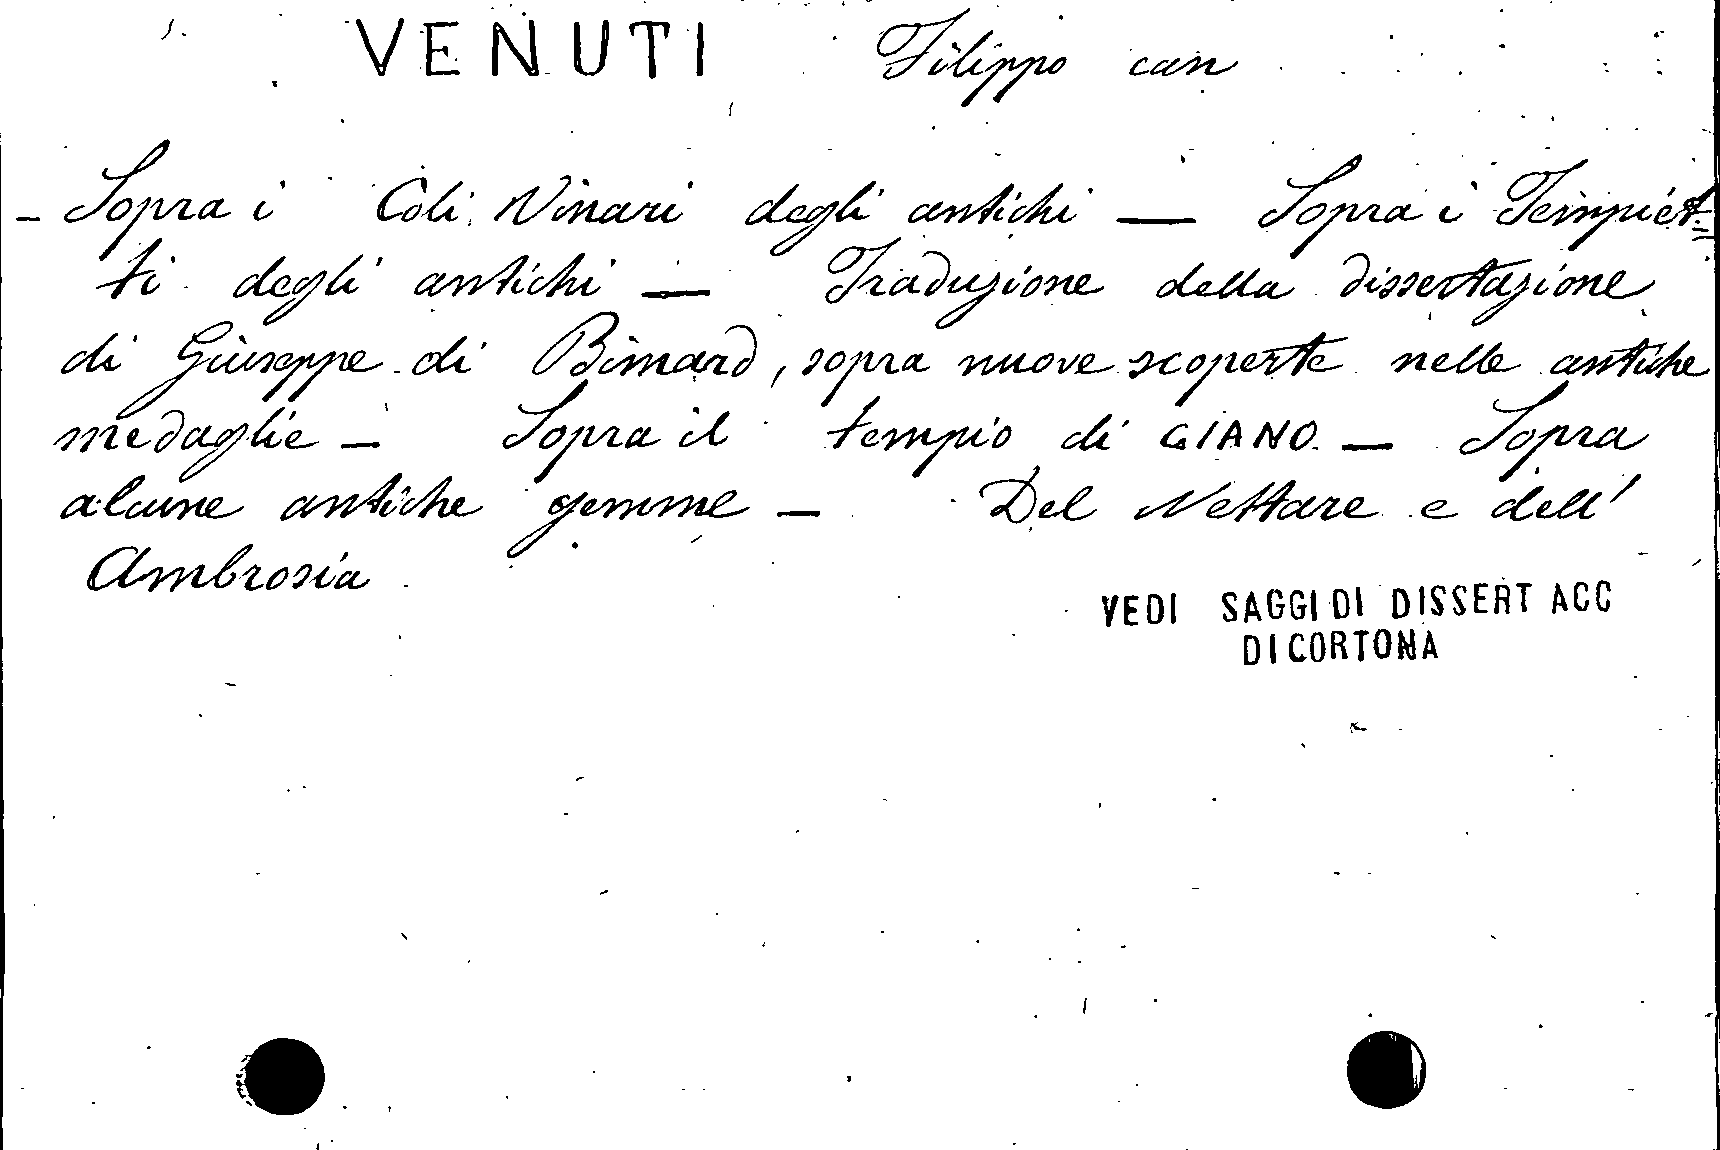 VENUTI Filippo can
- Sopra i Coli Vinari degli antichi — Sopra i Tempiet=
ti degli antichi — Traduzione della dissertazione
di Giuseppe di Bimard, sopra nuove scoperte nelle antiche
medaglie — Sopra il tempio di GIANO — Sopra
alcune antiche gemme — Del Nettare e dell'
Ambrosia
VEDI SAGGI DI DISSERT ACC
DI CORTONA